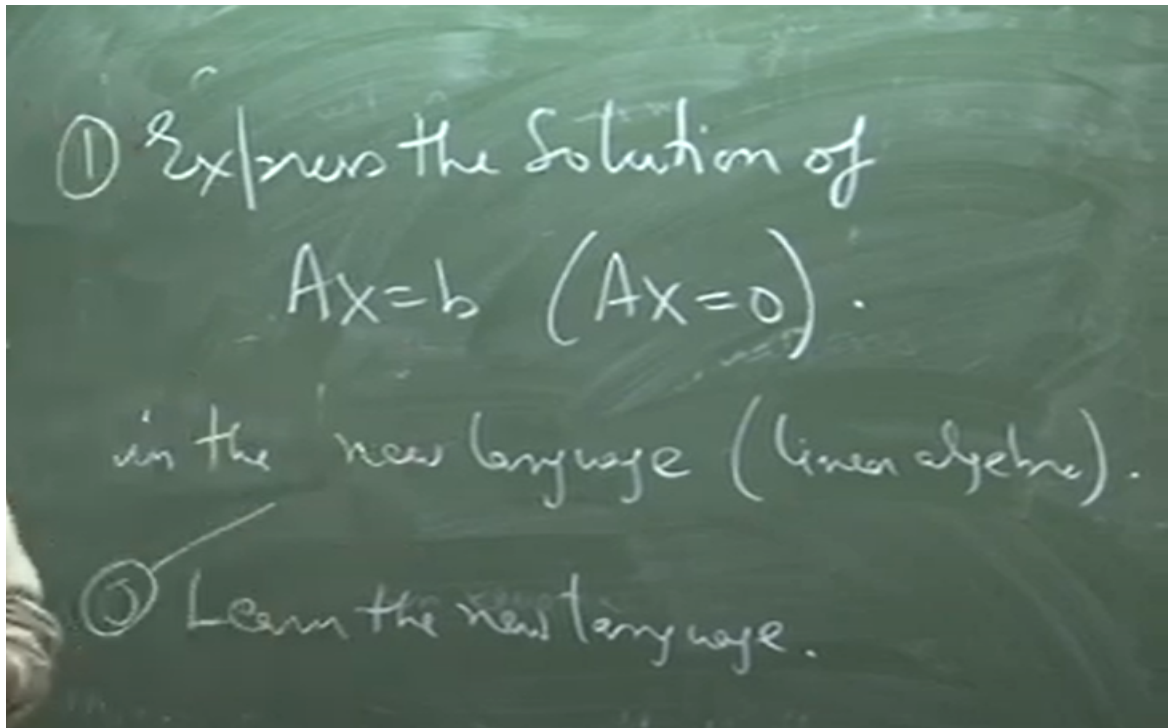 ① Express the Solution of
Ax=b (Ax=0).
in the new language (linear algebra).
⓪ Learn the new language.